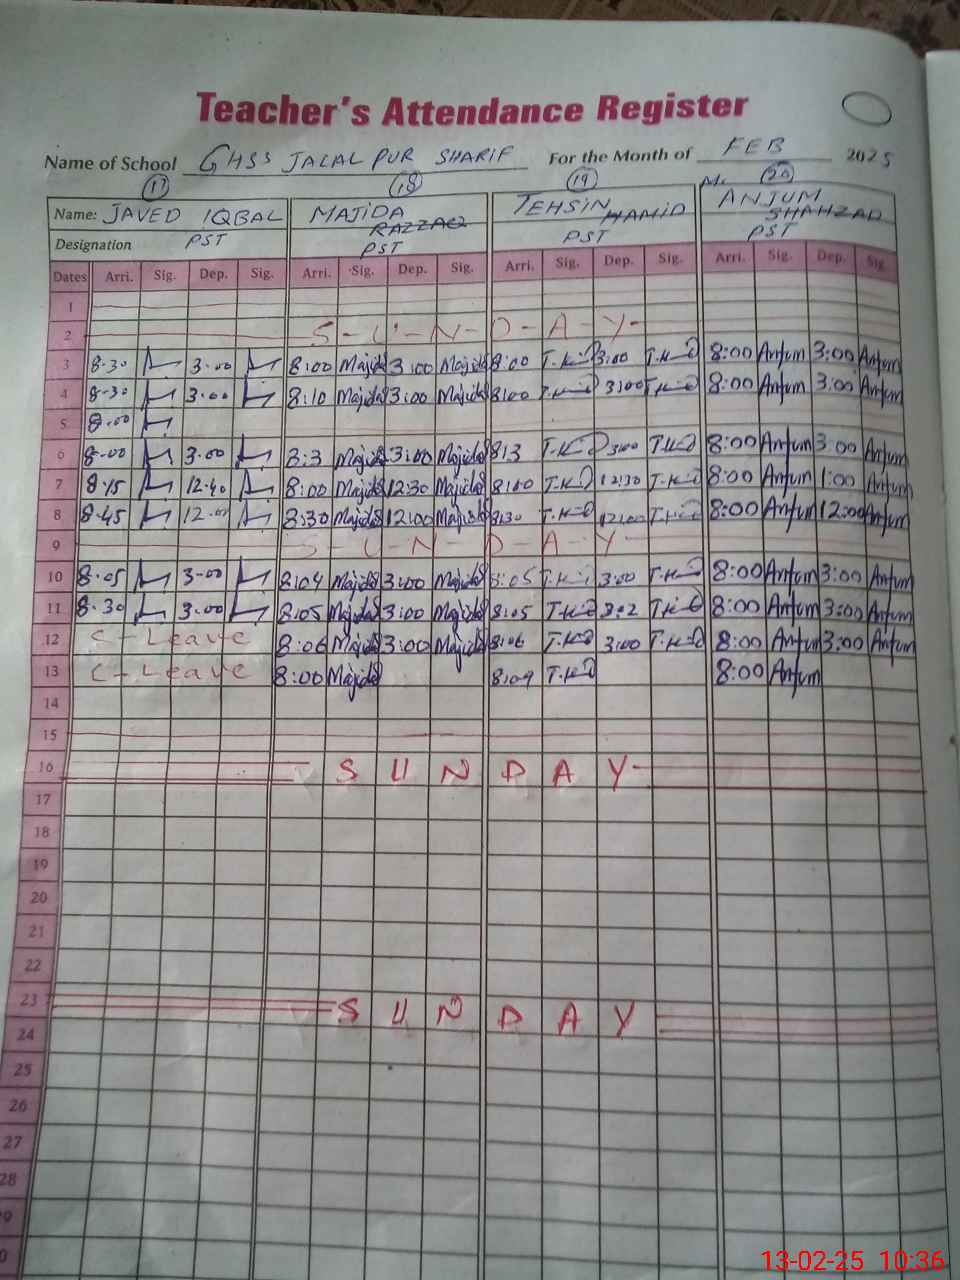 Teacher's Attendance Register
Name of School GHSS JALAL PUR SHARIF For the Month of FEB 2025
17 18 19 20
Name: JAVED IQBAL MAJIDA RAZZAQ TEHSIN HAMID ANJUM SHAHZAD
Designation PST PST PST PST
Dates Arri. Sig. Dep. Sig. Arri. Sig. Dep. Sig. Arri. Sig. Dep. Sig. Arri. Sig. Dep. Sig
1
2 S-U-N-D-A-Y-
3 8-30 3-00 8:00 Majida 3:00 Majida 8:00 3:00 8:00 Anjum 3:00 Anjum
4 8-30 3-00 8:10 Majida 3:00 Majida 8:00 3:00 8:00 Anjum 3:00 Anjum
5 8-00
6 8-00 3-00 8:3 Majida 3:00 Majida 8:3 3:00 8:00 Anjum 3:00 Anjum
7 8-15 12-40 8:00 Majida 12:30 Majida 8:00 12:30 8:00 Anjum 1:00 Anjum
8 8-45 12-00 8:30 Majida 12:00 Majida 8:30 12:00 8:00 Anjum 12:00 Anjum
9 S-U-N-D-A-Y
10 8-05 3-00 8:04 Majida 3:00 Majida 8:05 3:00 8:00 Anjum 3:00 Anjum
11 8-30 3-00 8:05 Majida 3:00 Majida 8:05 3:02 8:00 Anjum 3:00 Anjum
12 C-Leave 8:06 Majida 3:00 Majida 8:06 3:00 8:00 Anjum 3:00 Anjum
13 C-Leave 8:00 Majida 8:04 8:00 Anjum
14
15
16 S U N D A Y
17
18
19
20
21
22
23 S U N D A Y
24
25
26
27
28
13-02-25 10:36